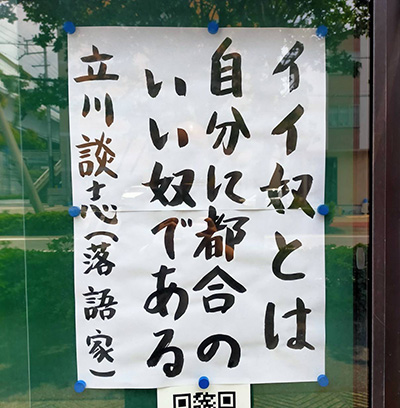 イイ奴とは
自分に都合の
いい奴である
立川談志(落語家)